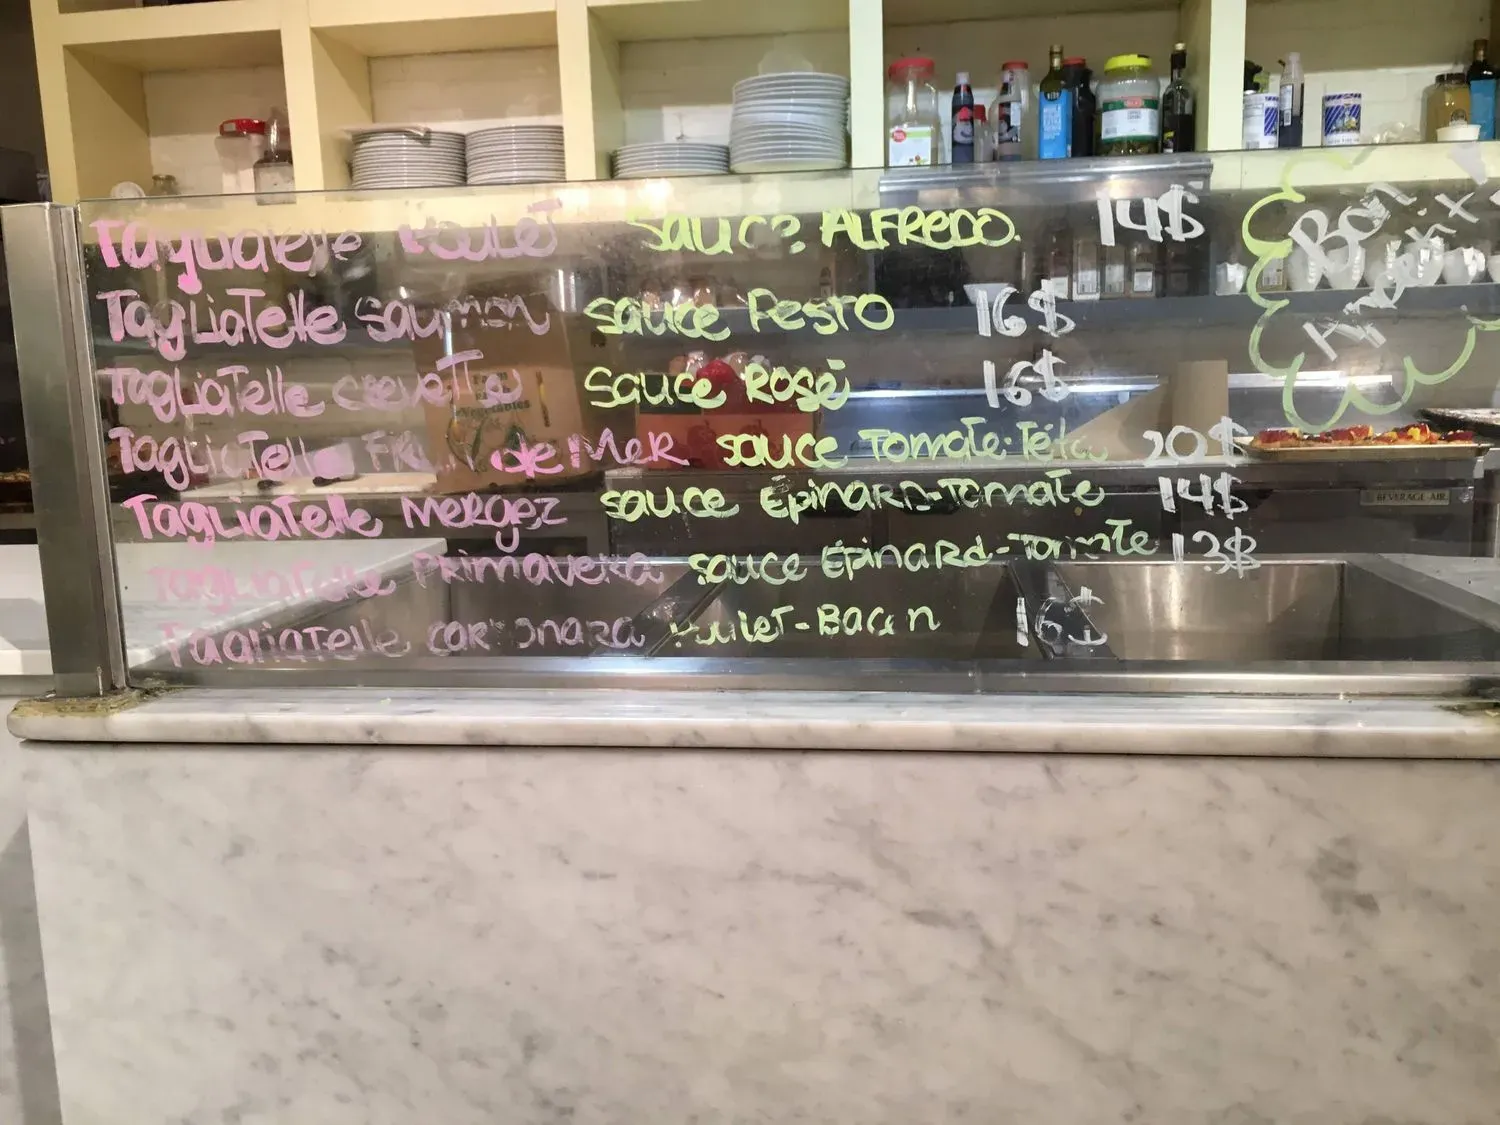 Tagliatelle Poulet Sauce ALFREDO. 14$
Tagliatelle Saumon Sauce Pesto 16$
Tagliatelle crevette Sauce Rosé 16$
Tagliatelle de Mer sauce Tomate 20$
Tagliatelle Merguez sauce Épinard-Tomate 14$
Tagliatelle Primavera sauce Épinard-Tomate 13$
Tagliatelle carbonara Poulet-Bacon 16$
Vegetables
BEVERAGE-AIR